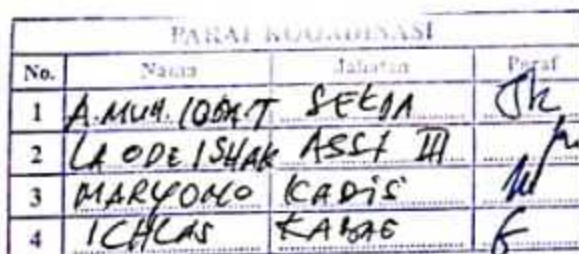 PARAF KOORDINASI
No. Nama Jabatan Paraf
1 A. MUH. IQBAT SEKDA
2 LA ODE ISHAK ASST III
3 MARYONO KADIS
4 ICHLAS KABAG